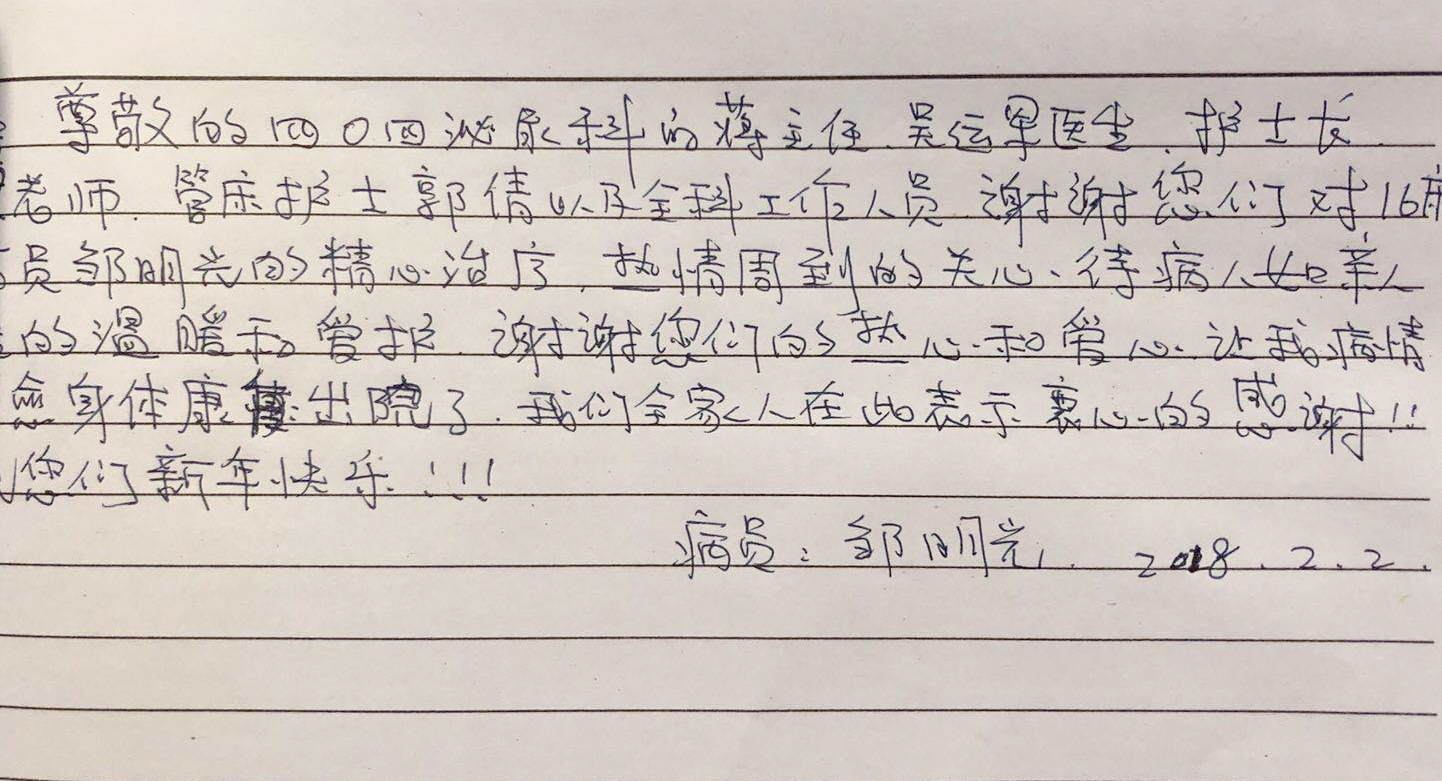 尊敬的四〇四泌尿科的蒋主任、吴运军医生、护士长
老师、管床护士郭倩以及全科工作人员、谢谢您们对16床
员邹明光的精心治疗、热情周到的关心、待病人如亲人
的温暖和爱护、谢谢您们的热心和爱心、让我病情
愈身体康復出院了、我们全家人在此表示衷心的感谢!!
您们新年快乐!!!
病员:邹明光、2018.2.2.